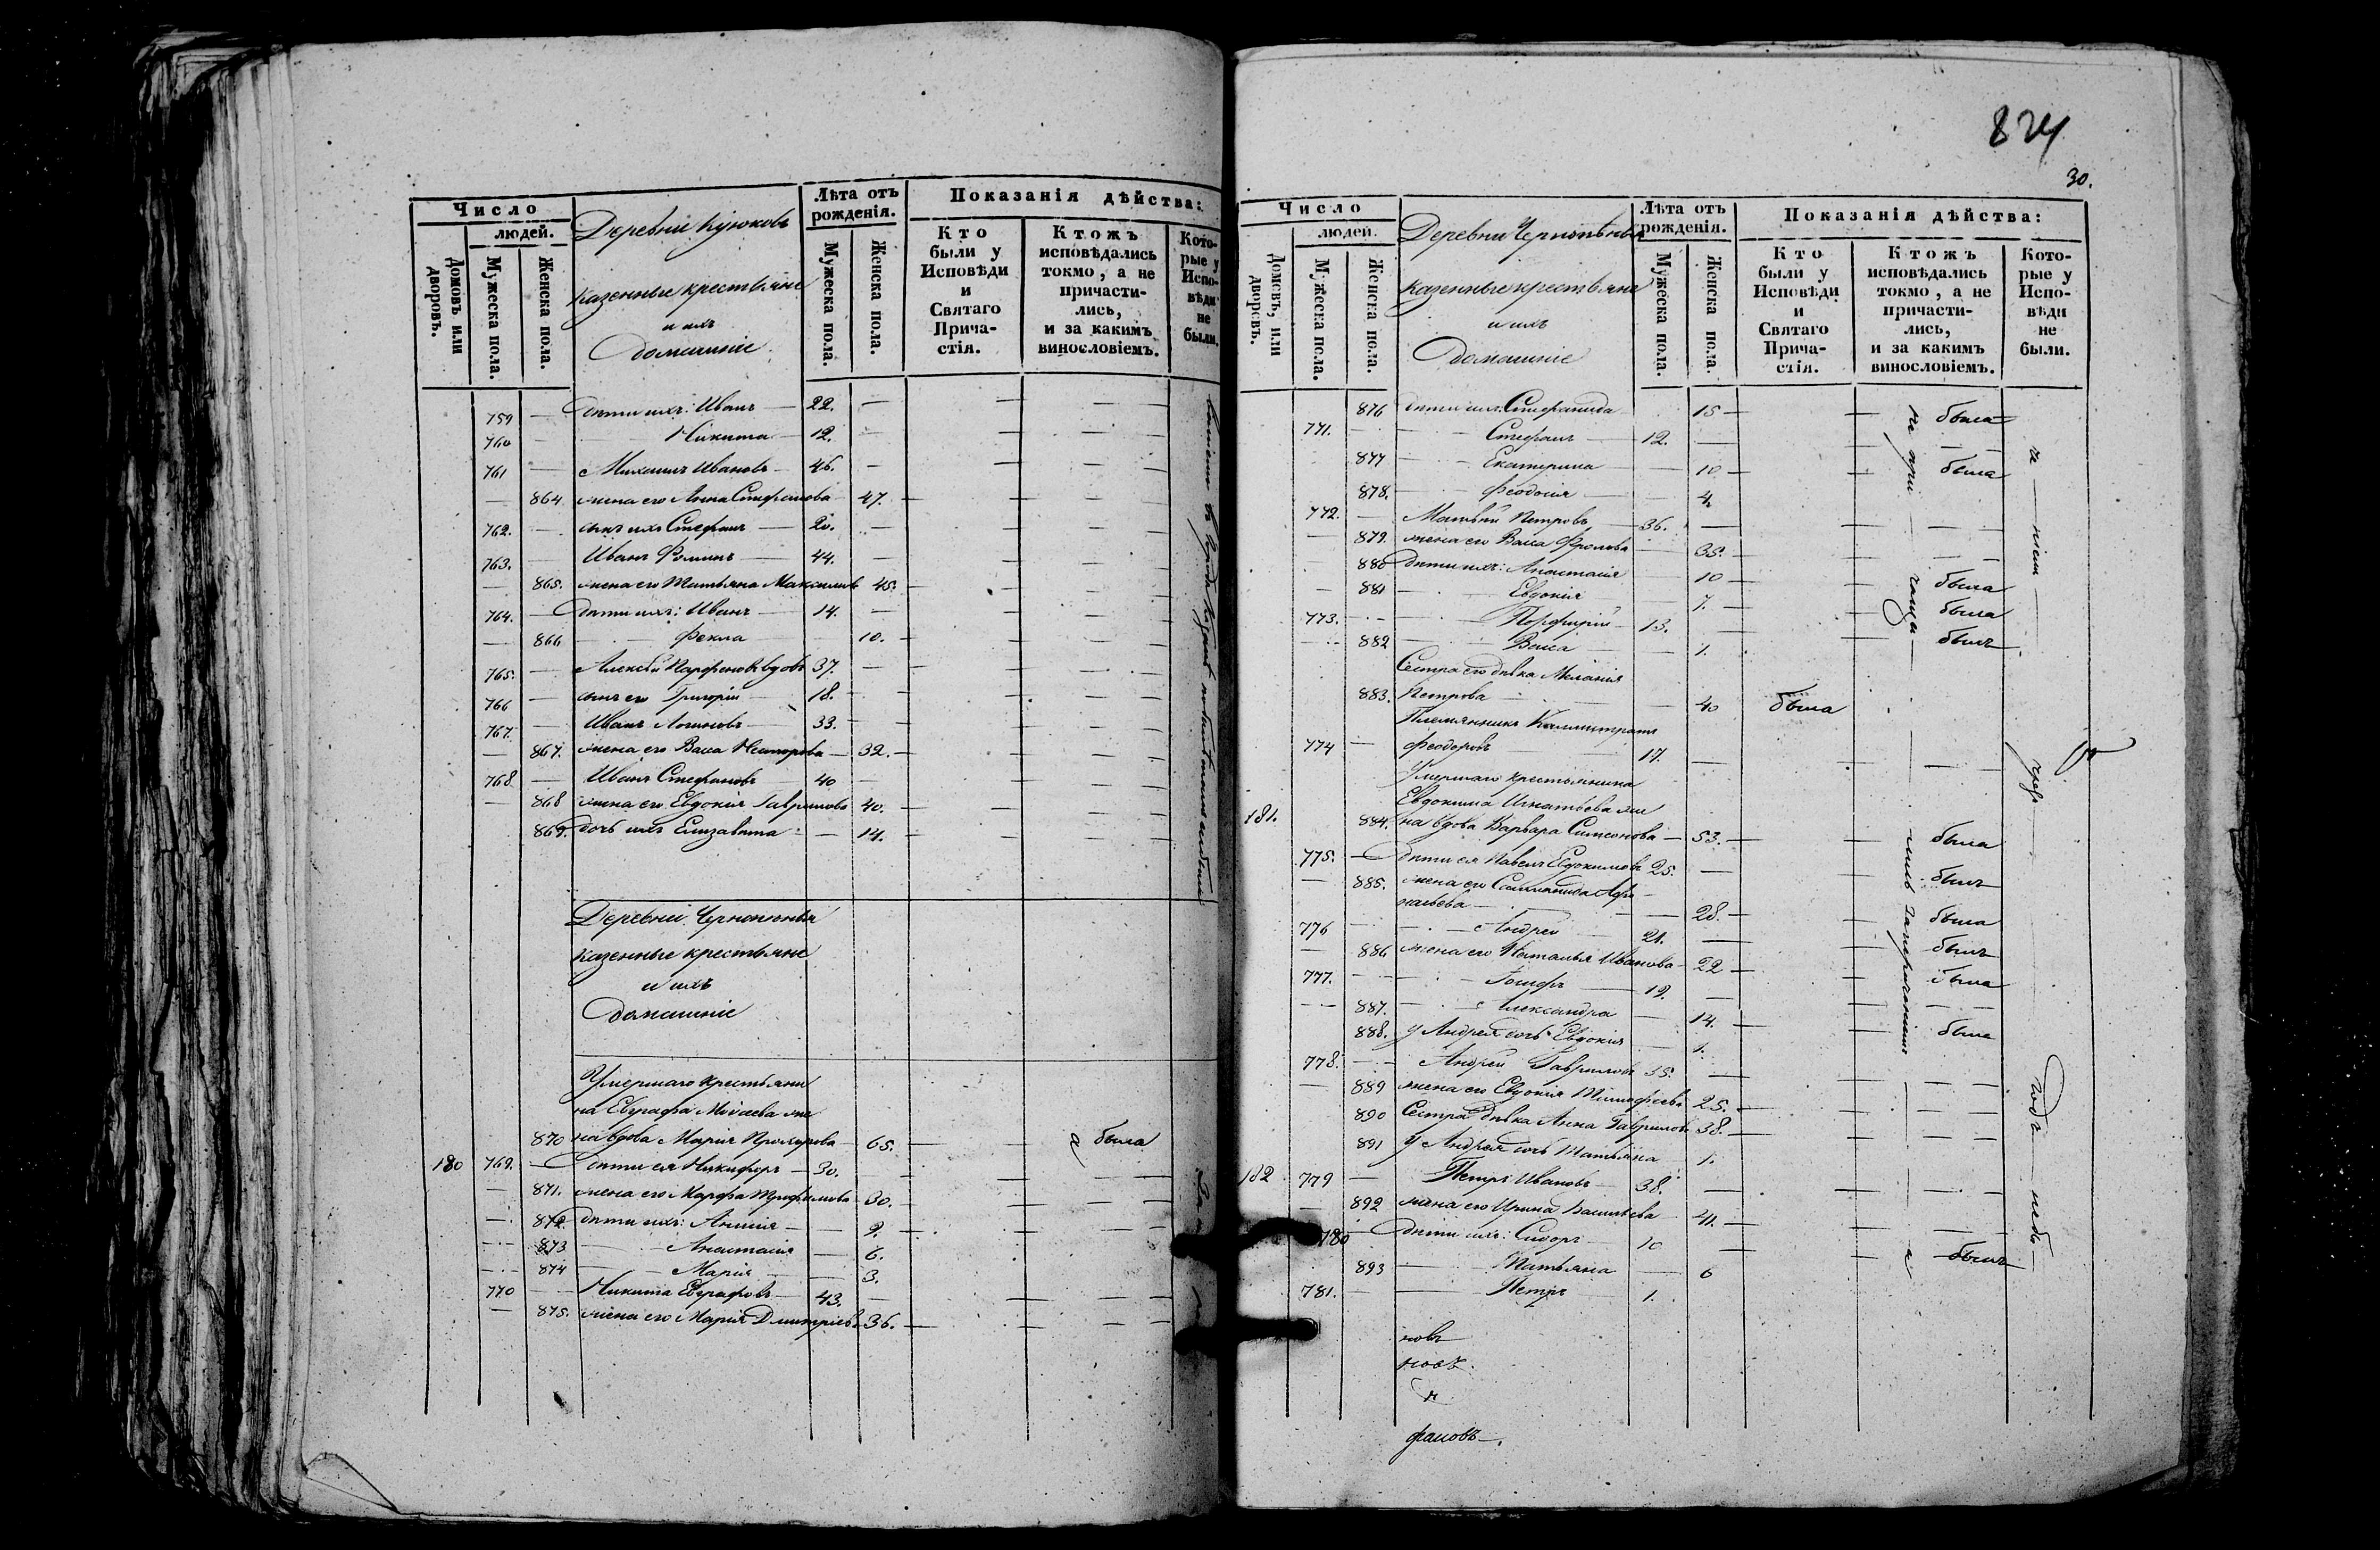 Число
людей.
Домовъ или дворовъ.
Мужеска пола.
Женска пола.
Деревни Крюковъ
Казенные крестьяне
и ихъ
домашніе
Лѣта отъ рожденія.
Мужеска пола.
Женска пола.
Показанія дѣйства:
Кто были у Исповѣди и Святаго Прича-стія.
Ктожъ исповѣдались токмо, а не причасти-лись, и за какимъ винословіемъ.
Кото-рые у Испо-вѣди не были.
759 — дѣти ихъ: Иванъ — 22. —
760 — Никита — 12. —
761 — Михаилъ Ивановъ — 46. —
— 864. жена его Анна Стефанова — 47. —
762. — сынъ ихъ Стефанъ — 20. —
763. — Иванъ Фоминъ — 44. —
— 865. жена его Татьяна Максимов 45. —
764. — дѣти ихъ: Иванъ — 14. —
— 866 — Фекла 10. —
765. — Алексѣй Парфеновъ вдовъ 37. —
766 — сынъ его Григорій — 18. —
767. — Иванъ Логиновъ — 33. —
— 867. жена его Васса Несторова — 32. —
768 — Иванъ Стефановъ — 40 —
— 868 жена его Евдокія Гаврилова 40. —
869. дочь ихъ Елизавета — 14. —
Деревни
казенные крестьяне
и ихъ
домашніе
Умершаго крестьяни
на Евграфа Моисеева же
870 на вдова Марія Прохорова 65. — а была
180 769. — дѣти ея Никифоръ — 30. —
— 871. жена его Марфа Трофимова 30. —
— 872. дѣти ихъ: Анисія — 9. —
— 873 — Анастасія — 6. —
— 874 — Марія — 3. —
770 — Никита Евграфовъ — 43. —
— 875. жена его Марія Дмитріев 36. —
824
30.
Число
людей.
Домовъ, или дворовъ.
Мужеска пола.
Женска пола.
Деревни
Казенные крестьяне
и ихъ
домашніе
Лѣта отъ рожденія.
Мужеска пола.
Женска пола.
Показанія дѣйства:
Кто были у Исповѣди и Святаго Прича-стія.
Ктожъ исповѣдались токмо, а не причасти-лись, и за какимъ винословіемъ.
Кото-рые у Испо-вѣди не были.
876 дѣти ихъ: Стефанида 15 — была
771. — Стефанъ — 12. —
877 — Екатерина — 10 — была
878. — Феодосія — 4
772. — Матвѣй Петровъ — 36. —
— 879. жена его Васса Фролова — 35. —
— 880 дѣти ихъ: Анастасія — 10 — была
— 881 — Евдокія — 7. — была
773. — Порфирій — 13. — былъ
882 — Васса — 1.
Сестра его дѣвка Меланія
883. Петрова — 40 была
Племянникъ Каллистратъ
774 — Феодоровъ 17. —
Умершаго крестьянина
Евдокима Игнатьева же
181. 884. на вдова Варвара Симеонова — 53. — была
775. — дѣти ея Павелъ Евдокимовъ 25. — былъ
— 885. жена его
— 28. — была
776 — Андрей 21. — былъ
— 886 жена его Наталья Иванова — 22 — была
777. — Іосифъ — 19. —
— 887. — Александра — 14. — была
888. у Андрея дочь Евдокія — 1.
778. — Андрей Гавриловъ 35. —
— 889 жена его Евдокія Тимофеева 25. —
890 Сестра дѣвка Анна Гаврилов 38. —
891 у Андрея дочь Татьяна — 1.
182 779 — Петръ Ивановъ — 38. —
— 892 жена его Ирина Васильева 41. —
780 — дѣти ихъ: Сидоръ 10 — а былъ
893 — Татьяна — 6
781. — Петръ — 1.
новъ
фановъ